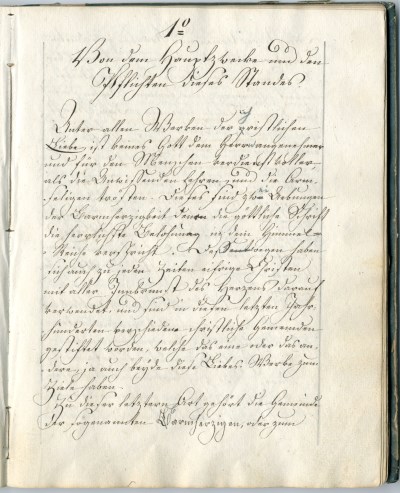 1º
Von dem Hauptzwecke und den
Pflichten dieses Standes.
Unter allen Werken der christlichen
Liebe, ist keines Gott dem Herrn angenehmer
und für den Menschen verdienstvoller
als die Unwissenden lehren, und die Arm-
seligen trösten. Dieses sind zwei Uebungen
der Barmherzigkeit denen die göttliche Schrift
die herrlichste Belohnung in dem Himmel-
Reiche verspricht. Dessentwegen haben
sich auch zu jeden Zeiten eifrige Christen
mit aller Innbrunst des Herzens darauf
verwendet und sind in diesen letzten Jahr-
hunderten verschiedene christliche Gemeinden
gestiftet worden, welche das eine oder das an-
dere, ja auch beyde diese Liebes-Werke zum
Ziele haben.
Zu dieser letztern Art gehört die Gemeinde
der sogenannten Barmherzigen, oder zum